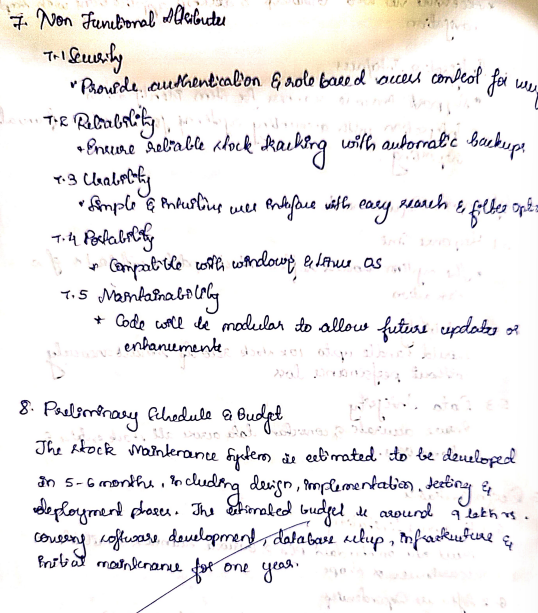 7. Non Functional Attributes
7.1 Security
• Provide authentication & role based access control for
7.2 Reliability
• Ensure reliable stock tracking with automatic backups
7.3 Usability
• Simple & intuitive user interface with easy search & filter
7.4 Portability
• Compatible with windows & Linux OS
7.5 Maintainability
• Code will be modular to allow future updates or
enhancements
8. Preliminary Schedule & Budget
The Stock Maintenance System is estimated to be developed
in 5-6 months, including design, implementation, testing &
deployment phases. The estimated budget is around 9 lakh rs.
covering software development, database setup, infrastructure &
initial maintenance for one year.